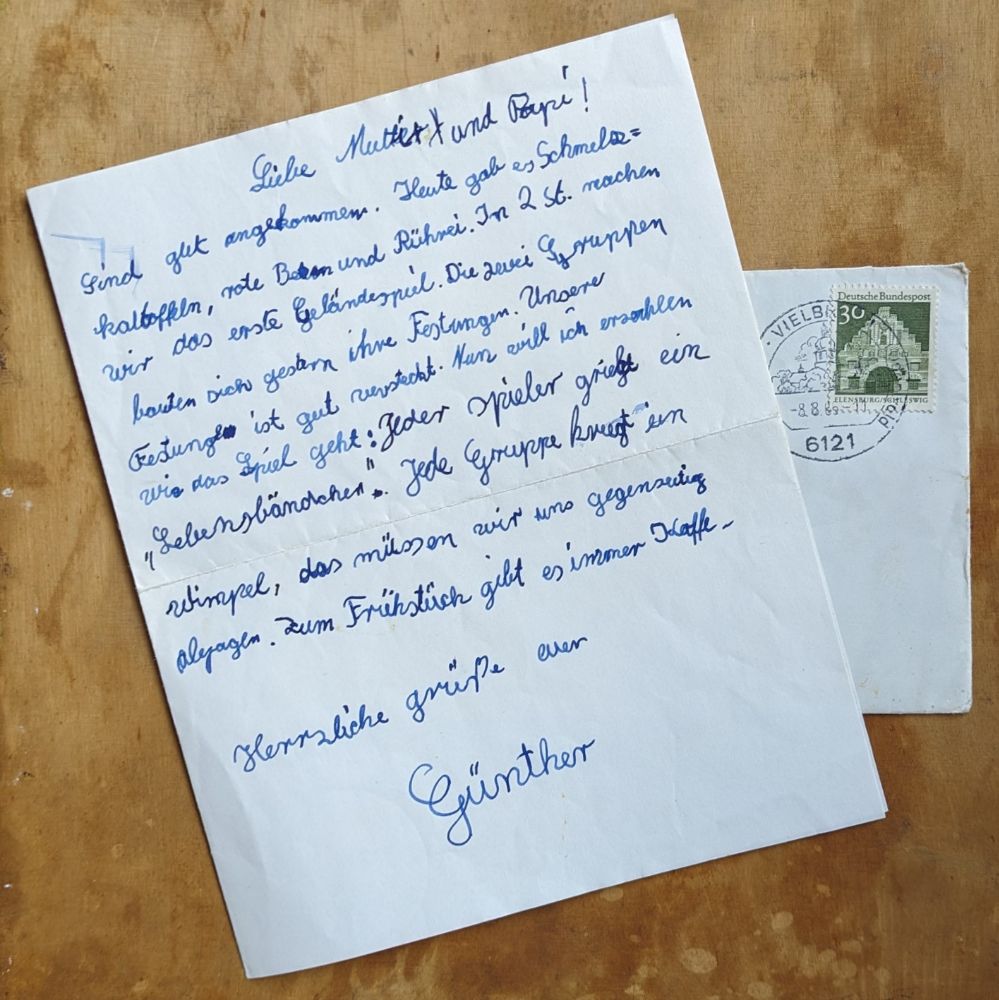 Liebe Mutti und Papi!
Sind gut angekommen. Heute gab es Schmelze=
kaltoffeln, rote Beten und Rührei. In 2 St. machen
wir das erste Geländespiel. Die zwei Gruppen
bauten sich gestern ihre Festungen. Unsere
Festung ist gut versteckt. Nun will ich erzahlen
wie das Spiel geht: Jeder spieler griegt ein
„Lebensbändchen". Jede Gruppe kriegt ein
wimpel, das müssen wir uns gegenseitig
abjagen. Zum Frühstück gibt es immer Kaffe-
Herrzliche grüße euer
Günther
Deutsche Bundespost
30
FLENSBURG/SCHLESWIG
6121